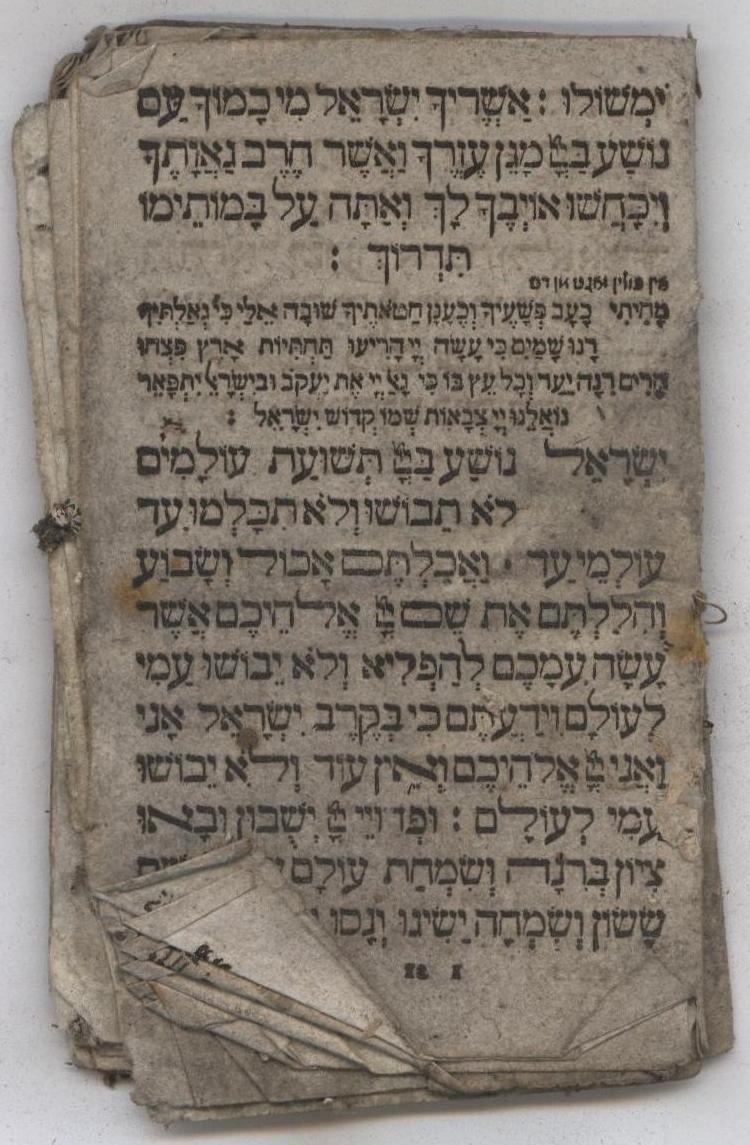 ימְשׁוֹלוּ : אַשְׁרֶיךָ יִשְׂרָאֵל מִי כָמוֹךָ עַם
נוֹשַׁע בַּיְיָ מָגֵן עֶזְרֶךָ וַאֲשֶׁר חֶרֶב גַּאֲוָתֶךָ
וְיִכָּחֲשׁוּ אוֹיְבֶיךָ לָךְ וְאַתָּה עַל בָּמוֹתֵימוֹ
תִּדְרוֹךְ :
אין פולין
מָחִיתִי כָעָב פְּשָׁעֶיךָ וְכֶעָנָן חַטֹּאתֶיךָ שׁוּבָה אֵלַי כִּי גְאַלְתִּיךָ
רָנּוּ שָׁמַיִם כִּי עָשָׂה יְיָ הָרִיעוּ תַּחְתִּיּוֹת אָרֶץ פִּצְחוּ
הָרִים רִנָּה יַעַר וְכָל עֵץ בּוֹ כִּי גָאַל יְיָ אֶת יַעֲקֹב וּבְיִשְׂרָאֵל יִתְפָּאֵר
גוֹאֲלֵנוּ יְיָ צְבָאוֹת שְׁמוֹ קְדוֹשׁ יִשְׂרָאֵל :
יִשְׂרָאֵל נוֹשַׁע בַּיְיָ תְּשׁוּעַת עוֹלָמִים
לֹא תֵבוֹשׁוּ וְלֹא תִכָּלְמוּ עַד
עוֹלְמֵי עַד · וַאֲכַלְתֶּם אָכוֹל וְשָׂבוֹעַ
וְהִלַּלְתֶּם אֶת שֵׁם יְיָ אֱלֹהֵיכֶם אֲשֶׁר
עָשָׂה עִמָּכֶם לְהַפְלִיא וְלֹא יֵבוֹשׁוּ עַמִּי
לְעוֹלָם וִידַעְתֶּם כִּי בְקֶרֶב יִשְׂרָאֵל אָנִי
וַאֲנִי יְיָ אֱלֹהֵיכֶם וְאֵין עוֹד וְלֹא יֵבוֹשׁוּ
עַמִּי לְעוֹלָם : וּפְדוּיֵי יְיָ יְשֻׁבוּן וּבָאוּ
צִיּוֹן בְּרִנָּה וְשִׂמְחַת עוֹלָם
שָׂשׂוֹן וְשִׂמְחָה יַשִּׂיגוּ וְנָסוּ